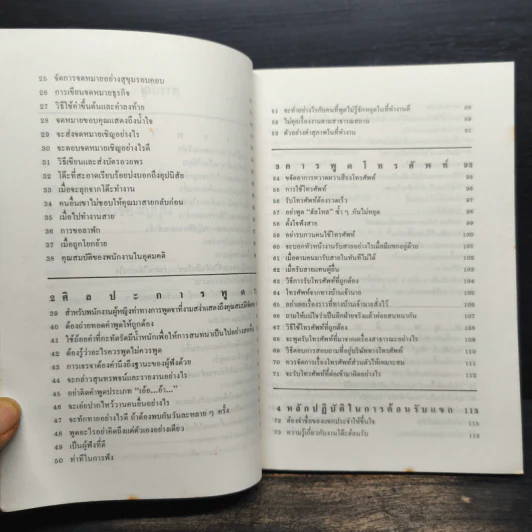 25 จัดการจดหมายอย่างสุขุมรอบคอบ
26 การเขียนจดหมายธุรกิจ
27 วิธีใช้คำขึ้นต้นและคำลงท้าย
28 จดหมายขอบคุณแสดงถึงน้ำใจ
29 จะส่งจดหมายเชิญอย่างไร
30 จะตอบจดหมายเชิญอย่างไรดี
31 วิธีเขียนและส่งบัตรอวยพร
32 โต๊ะที่สะอาดเรียบร้อยบ่งบอกถึงอุปนิสัย
33 เมื่อจะลุกจากโต๊ะทำงาน
34 คนอื่นเขาไม่ชอบให้คุณมาสายกลับก่อน
35 เมื่อไปทำงานสาย
36 การขอลาพัก
37 เมื่อถูกโยกย้าย
38 คุณสมบัติของพนักงานในอุดมคติ
2 ศิลปะการพูด
39 สำหรับพนักงานผู้หญิงท่าทางการพูดจาที่งามสง่าแสดงถึงคุณสมบัติ
40 ต้องถ่ายทอดคำพูดให้ถูกต้อง
41 ใช้ถ้อยคำที่กะทัดรัดมีน้ำหนักเพื่อให้การสนทนาเป็นไปอย่าง
42 ต้องรู้ว่าอะไรควรพูดไม่ควรพูด
43 การเจรจาต้องคำนึงถึงฐานะของผู้ฟังด้วย
44 จะกล่าวสุนทรพจน์และรายงานอย่างไร
45 อย่าติดคำพูดประเภท "เอ้อ...อ้า..."
46 จะเอ่ยปากไหว้วานคนอื่นอย่างไร
47 จะทักทายอย่างไรดี ถ้าต้องพบกันวันละหลาย ๆ ครั้ง
48 พูดอะไรอย่าคิดถึงแต่ตัวเองอย่างเดียว
49 เป็นผู้ฟังที่ดี
50 ท่าทีในการฟัง
51 จะทำอย่างไรกับคนที่พูดไม่รู้จักหยุดในที่ทำงานดี
52 ไม่คุยเรื่องงานตามสาธารณสถาน
53 ตัวอย่างคำสุภาพในที่ทำงาน
3 การพูดโทรศัพท์ 93
54 ขจัดอาการหวาดหวั่นเสียงโทรศัพท์
55 การใช้โทรศัพท์
56 รับโทรศัพท์ต้องรวดเร็ว
57 อย่าพูด "ฮัลโหล" ซ้ำ ๆ กันไม่หยุด
58 ตั้งใจฟังสาย
59 อย่ารบกวนคนใช้โทรศัพท์
60 จะบอกหัวหน้างานรับสายอย่างไรเมื่อมีแขกอยู่ด้วย
61 เมื่อตามคนมารับสายในทันทีไม่ได้
62 เมื่อรับสายแทนผู้อื่น
63 วิธีการรับโทรศัพท์ที่ถูกต้อง
64 โทรศัพท์จากทางบ้านเจ้านาย
65 อย่าเผยเรื่องราวที่ทางบ้านเจ้านายสั่งไว้
66 ถามให้แน่ใจว่าเป็นอีกฝ่ายจริงแล้วค่อยสนทนากัน
67 วิธีใช้โทรศัพท์ที่ถูกต้อง
68 จะพูดรับโทรศัพท์ที่มาจากเครื่องสาธารณะอย่างไร
69 วิธีตอบการสอบถามที่อยู่บริษัททางโทรศัพท์
70 ควรจัดการเรื่องโทรศัพท์ส่วนตัวให้เหมาะสม
71 จะรับโทรศัพท์ที่ต่อเข้ามาผิดอย่างไร
4 หลักปฏิบัติในการต้อนรับแขก 113
72 ต้องจำชื่อของแขกประจำให้ขึ้นใจ
73 ความรู้เกี่ยวกับงานโต๊ะต้อนรับ